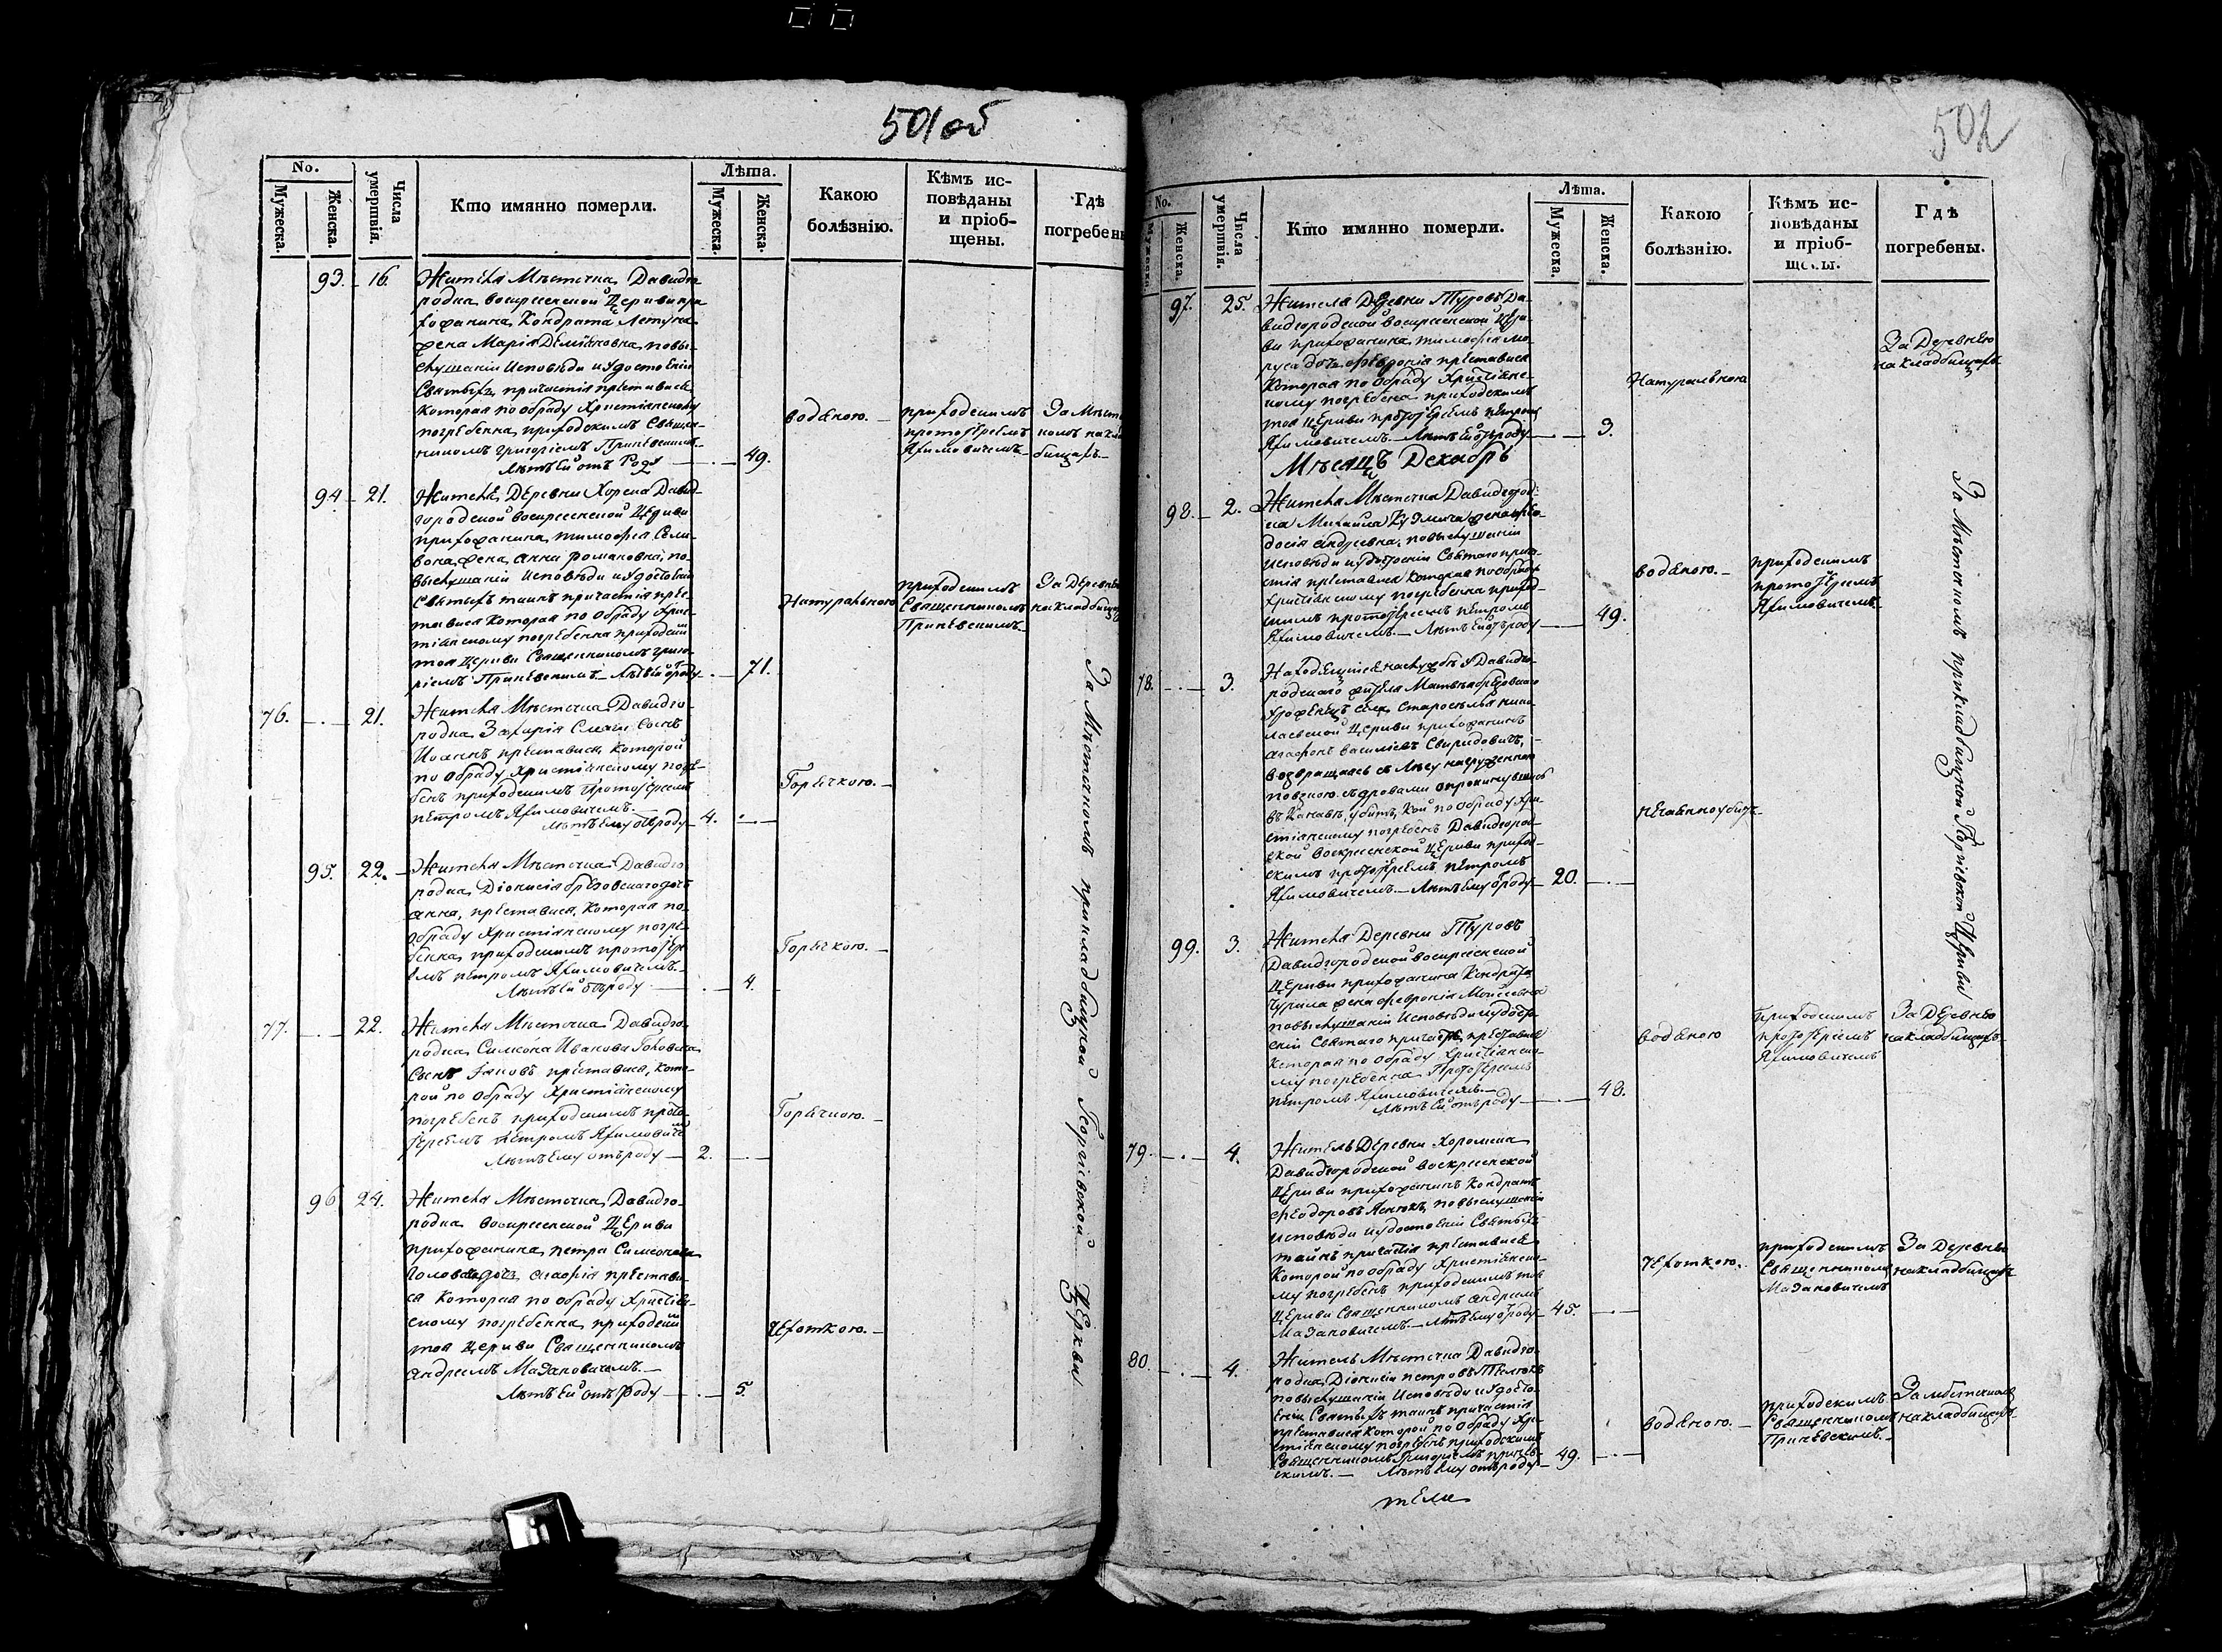 501 об
No.
Мужеска.
Женска.
Числа умертвія.
Кто имянно померли.
Лѣта.
Мужеска.
Женска.
Какою болѣзнію.
Кѣмъ исповѣданы и пріобщены.
Гдѣ погребены
93. 16. Жителя Мѣстечка Давидго
родка воскресенской Церкви при
хожанина Кондрата
жена Марія Деміяновна, повы
слушаніи Исповѣди и Удостоеніи
Святыхъ причастія преставися
которая по обряду Христіянскому
погребенна приходскимъ Священ
никомъ Григоріемъ Приневскимъ
Лѣтъ Ей отъ Роду — 49.
водяною.
приходскимъ
протоіереемъ
Якимовичемъ
За Мѣст
комъ на кла
бищахъ
94. 21. Жителя Деревни Хорска Давид
городской воскресенской Церкви
прихожанина Тимофея
жена, Анна Романовна, по
выслушаніи Исповѣди и Удостоеніи
Святыхъ таинъ причастія пре
тавися Которая по Обряду Хрис
тіянскому погребенна приходскимъ
тоя Церкви Священникомъ Григо
ріемъ Приневскимъ — 71.
Натуральною
приходскимъ
Священникомъ
Приневскимъ
За Деревнею
на кладбищахъ
76. 21. Жителя Мѣстечка Давидго
родка Захарія сынъ
Иоаннъ преставися, которой
по Обряду Христіянскому погре
бенъ приходскимъ Протоіереемъ
Петромъ Якимовичемъ
Лѣтъ Ему отъ роду 4.
Горячкою.
95. 22. Жителя Мѣстечка Давидго
родка Діонисія дочь
Анна, преставися, Которая по
Обряду Христіянскому погре
бенна приходскимъ протоіере
емъ Петромъ Якимовичемъ
Лѣтъ Ей отъ роду — 4.
Горячкою.
77. 22. Жителя Мѣстечка Давидго
родка Симеона Иванова
Сынъ Іяковъ преставися, Кото
рой по Обряду Христіянскому
погребенъ приходскимъ прото
іереемъ Петромъ Якимовичемъ
Лѣтъ Ему отъ роду 2.
Горячкою.
96. 24. Жителя Мѣстечка Давидго
родка воскресенской Церкви
прихожанина Петра Симеонова
дочь престави
ся Которая по Обряду Христіян
скому погребенна приходскимъ
тоя Церкви Священникомъ
Андреемъ Мазановичемъ.
Лѣтъ Ей отъ Роду — 5.
чехоткою.
За Мѣстечкомъ при кладбищной Георгіевской Церкви
502
No.
Мужеска.
Женска.
Числа умертвія.
Кто имянно померли.
Лѣта.
Мужеска.
Женска.
Какою болѣзнію.
Кѣмъ исповѣданы и пріобщены.
Гдѣ погребены.
97. 25. Жителя Деревни Туровъ Да
видгородской воскресенской Церк
ви прихожанина Тимофея
дочь Февронія преставися
Которая по Обряду Христіянс
кому погребена приходскимъ
тоя Церкви протоіереемъ Петромъ
Якимовичемъ — Лѣтъ Ей отъ роду — 3.
Натуральною
За Деревнею
на кладбищахъ
Мѣсяцъ Декабрь
98. 2. Жителя Мѣстечка Давидгород
ка Михаила жена Фео
досія Андреевна, повыслушаніи
Исповѣди и удостоеніи Святаго прича
стія преставися Которая по Обряду
Христіянскому погребенна приход
скимъ протоіереемъ Петромъ
Якимовичемъ. — Лѣтъ Ей отъ роду — 49.
водяною.
приходскимъ
протоіереемъ
Якимовичемъ
78. 3. Находящійся на службѣ у Давидго
родскаго
села Староселья нико
лаевской Церкви прихожанинъ
Агафонъ Василіевъ Свиридовичъ,
возвращаясь съ Лѣсу нагруженною
повозкою съ дровами опрокинувшись
въ Канаву, убитъ, Кой по Обряду Хри
стіянскому погребенъ Давидгород
ской воскресенской Церкви приход
скимъ протоіереемъ Петромъ
Якимовичемъ — Лѣтъ Ему отъ роду 20.
нечаянно убитъ
99. 3. Жителя Деревни Туровъ
Давидгородской воскресенской
Церкви прихожанина Кондрата
Чурила жена Февронія Моисеевна
повыслушаніи Исповѣди и удосто
еніи Святаго причастія преставися
Которая по Обряду Христіянско
му погребенна Протоіереемъ
Петромъ Якимовичемъ.
Лѣтъ Ей отъ роду — 48.
водяною
приходскимъ
протоіереемъ
Якимовичемъ
За Деревнею
на кладбищахъ
79. 4. Житель Деревни Хоромска
Давидгородской воскресенской
Церкви прихожанинъ Кондратъ
Феодоровъ повыслушаніи
Исповѣди и удостоеніи Святыхъ
тайнъ причастія преставися
Которой по Обряду Христіянско
му погребенъ приходскимъ тоя
Церкви Священникомъ Андреемъ
Мазановичемъ. — Лѣтъ Ему отъ роду 45.
чехоткою.
приходскимъ
Священникомъ
Мазановичемъ
За Деревнею
на кладбищахъ
80. 4. Житель Мѣстечка Давидго
родка Діонисій Петровъ
повыслушаніи Исповѣди и Удосто
еніи Святыхъ таинъ причастія
преставися Которой по Обряду Хри
стіянскому погребенъ приходскимъ
Священникомъ Григоріемъ Принев
скимъ. — Лѣтъ Ему отъ роду 49.
водяною.
приходскимъ
Священникомъ
Приневскимъ.
За мѣстечкомъ
на кладбищахъ
За Мѣстечкомъ при кладбищной Георгіевской Церкви